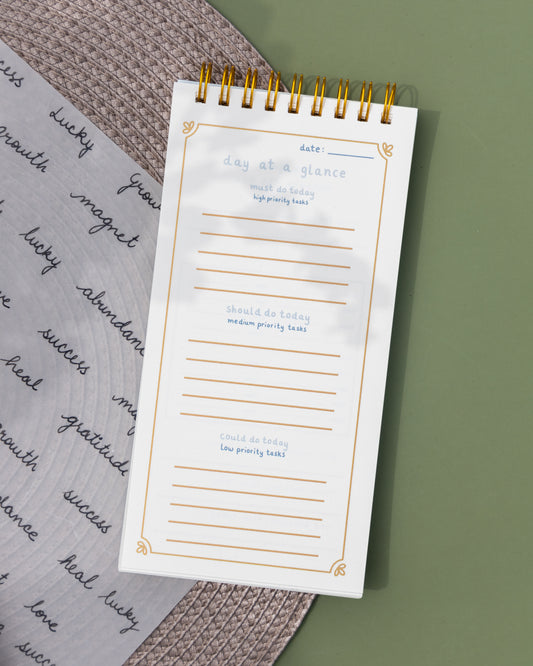 date:
day at a glance
must do today
high priority tasks
should do today
medium priority tasks
Could do today
Low priority tasks
Lucky
Growth
magnet
lucky
abundance
success
heal
gratitude
success
heal lucky
love
success